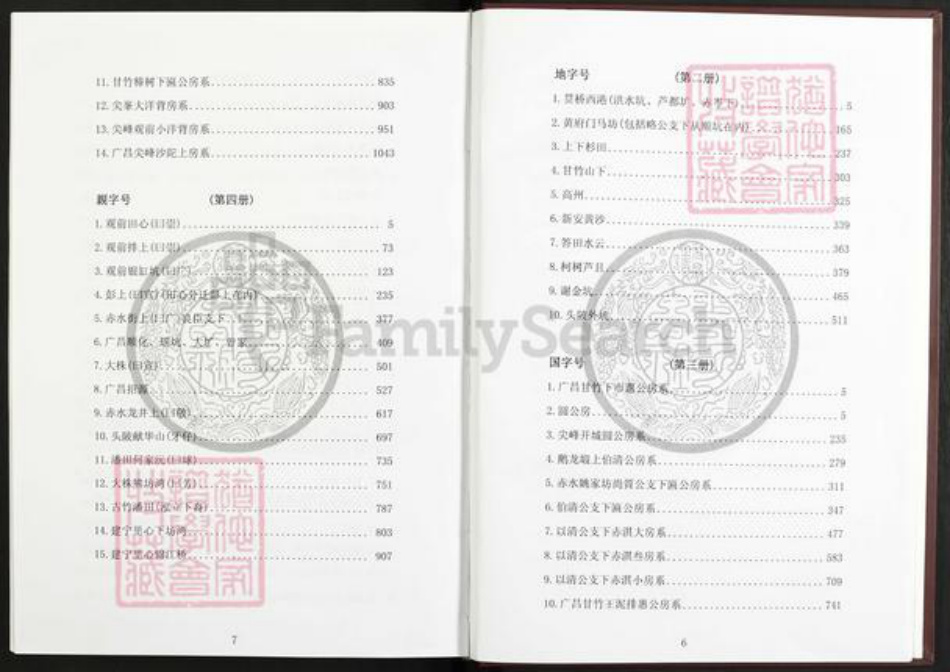 地字号 (第二册)
1. 贯桥西港(洪水坑、芦都圹、赤里下) 5
2. 黄府门马坊(包括略公支下 在内) 165
3. 上下杉田 237
4. 甘竹山下 303
5. 高州 325
6. 新安黄沙 339
7. 答田水云 363
8. 柯树芦且 379
9. 谢金坑 465
10. 头陂外坑 511
国字号 (第三册)
1. 广昌甘竹下市惠公房系 5
2. 圆公房 5
3. 尖峰开城圆公房系 235
4. 鹅龙塅上伯清公房系 279
5. 赤水姚家坊尚质公支下 公房系 311
6. 伯清公支下 公房系 347
7. 以清公支下赤淇大房系 477
8. 以清公支下赤淇叁房系 583
9. 以清公支下赤淇小房系 709
10. 广昌甘竹王泥排惠公房系 741
6
11. 甘竹樟树下 公房系 835
12. 尖峯大洋背房系 903
13. 尖峰观前小洋背房系 951
14. 广昌尖峰沙陀上房系 1043
親字号 (第四册)
1. 观前田心 5
2. 观前排上 73
3. 观前银缸城 123
4. 彭上 (田心分迁彭上在内) 235
5. 赤水街上 良臣支下 377
6. 广昌顺化、瑶坑、大圹、曾家 409
7. 大株 501
8. 广昌招源 527
9. 赤水龙井上 617
10. 头陂献华山(牙仔) 697
11. 潘田何家沅 735
12. 大株熊坊湾 751
13. 古竹潘田 787
14. 建宁里心下坊湾 803
15. 建宁里心锦江桥 907
7
FamilySearch